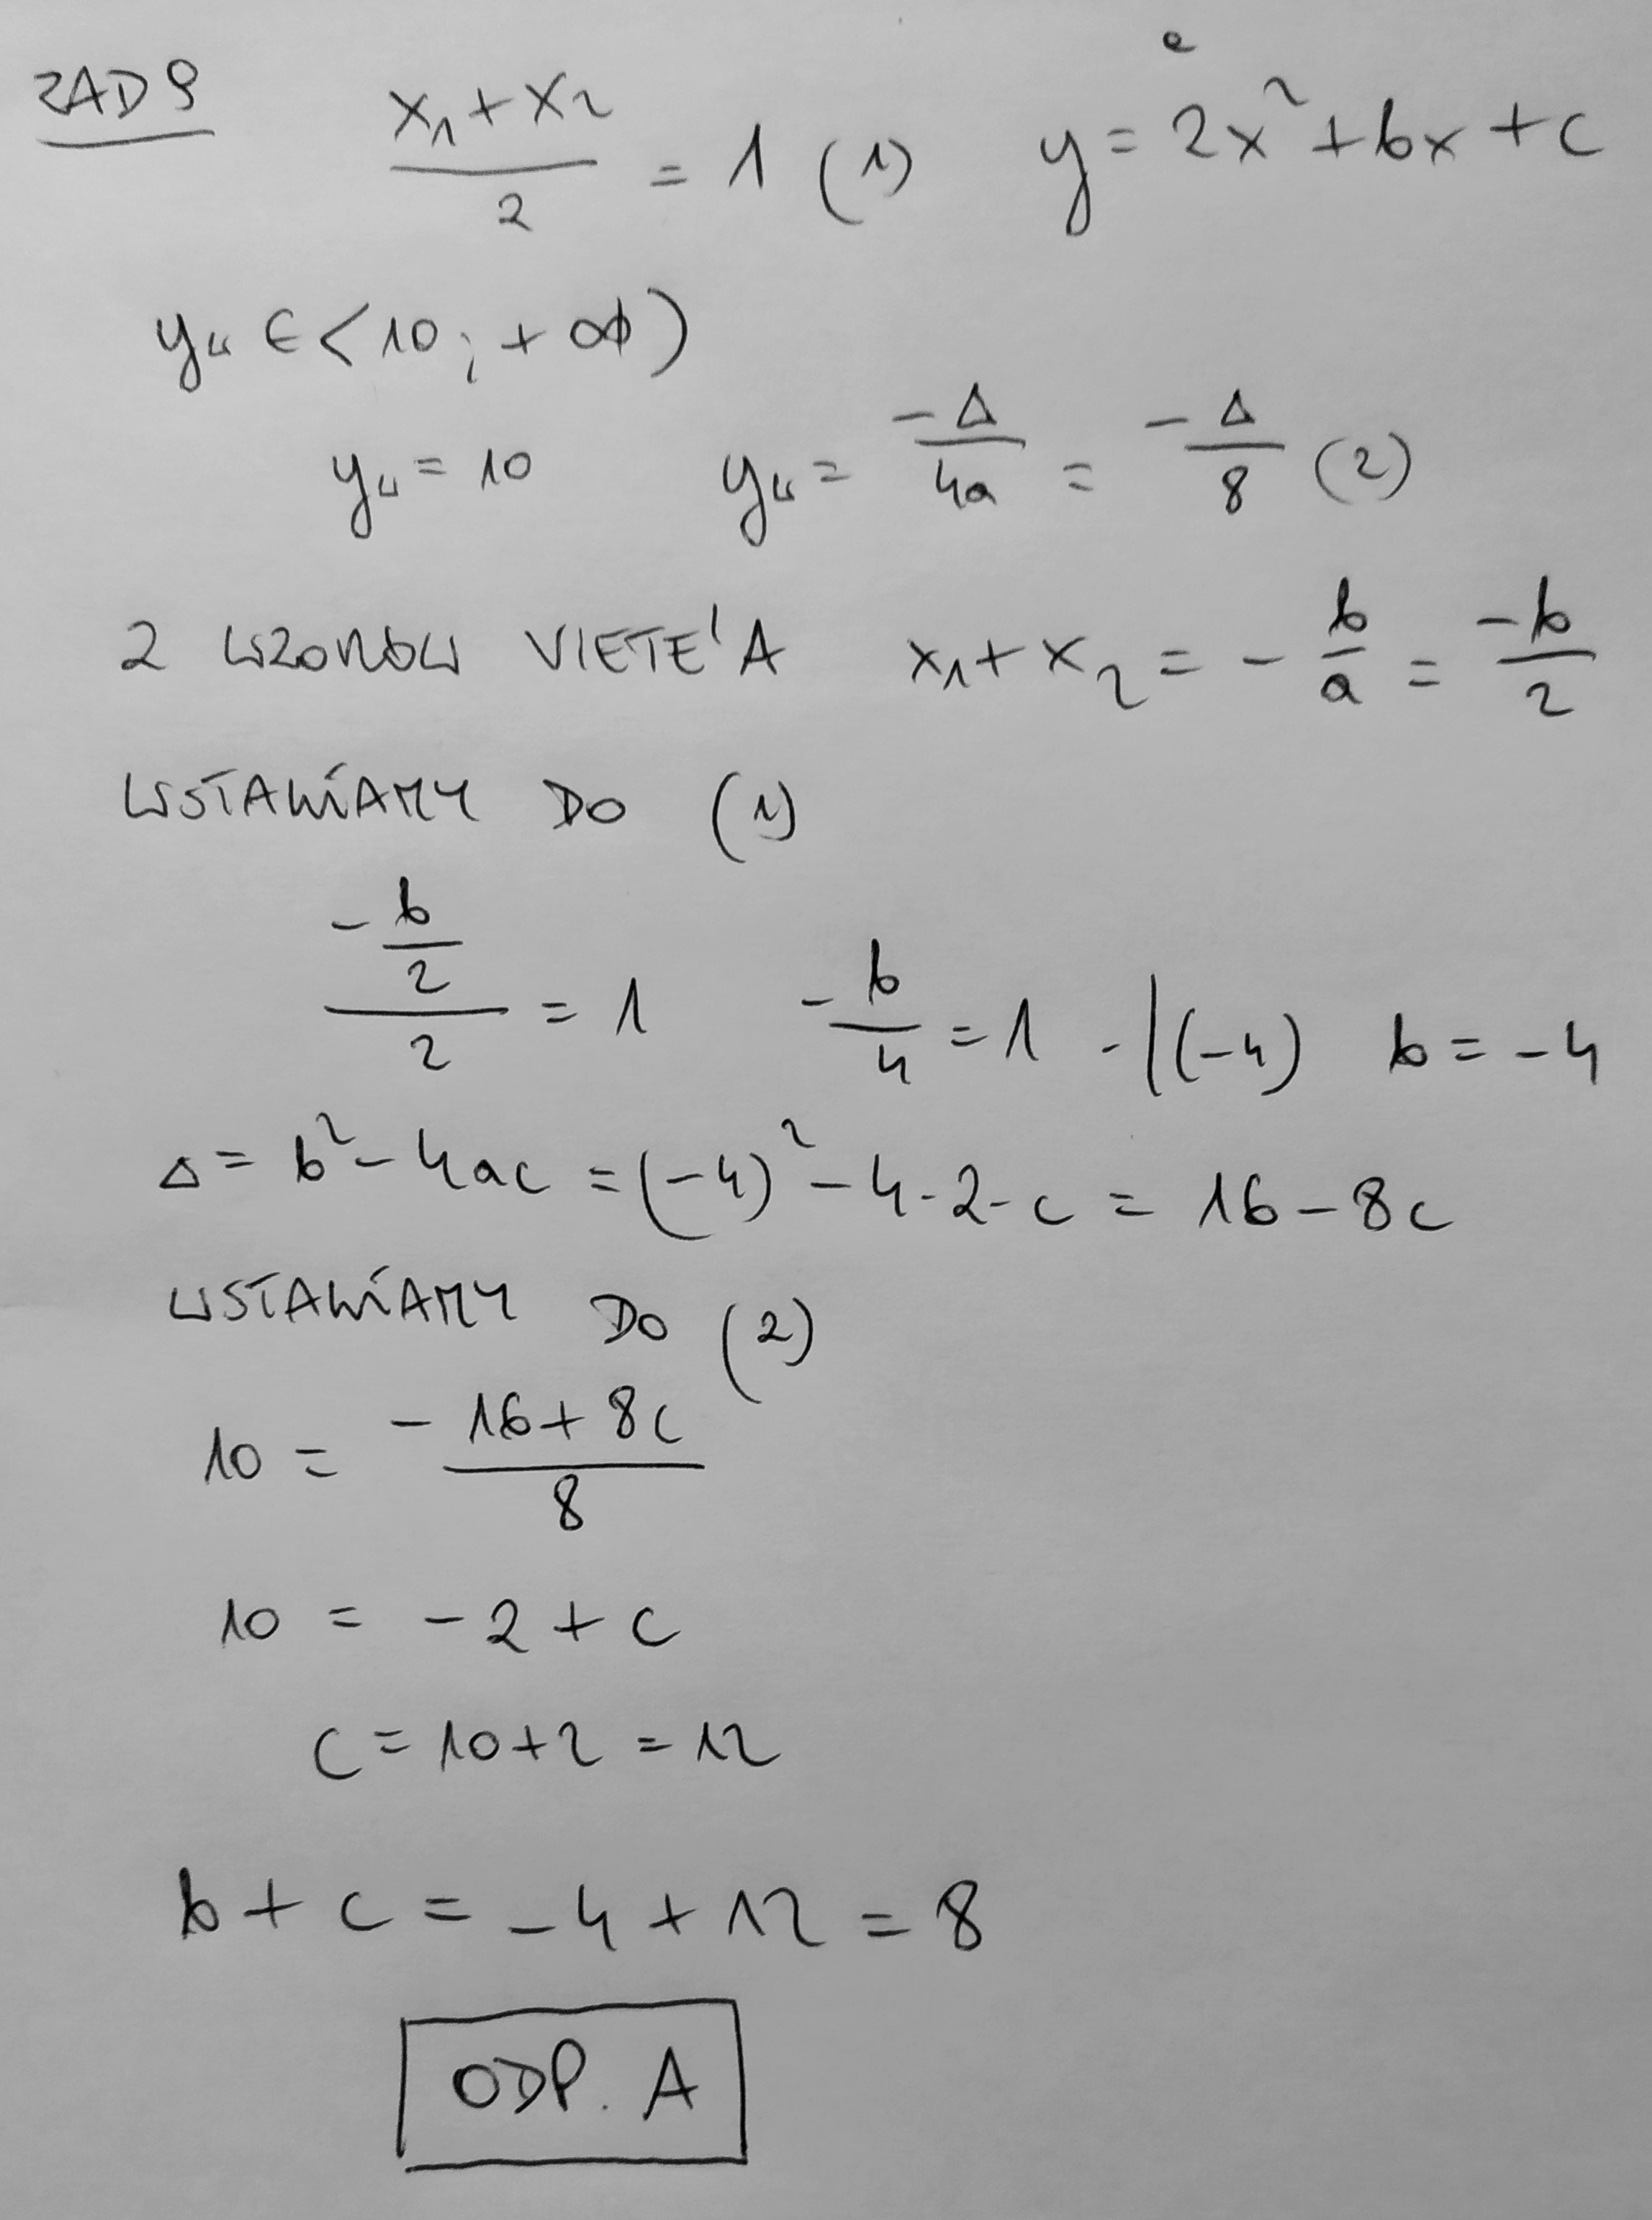 ZAD 9 (x₁+x₂)/2 = 1 (1) y = 2x²+bx+c
yw ∈ <10; +∞)
yw = 10 yw = -Δ/4a = -Δ/8 (2)
Z WZORÓW VIETE'A x₁+x₂ = -b/a = -b/2
WSTAWIAMY DO (1)
(-b/2)/2 = 1 -b/4 = 1 ·|(-4) b = -4
Δ = b²-4ac = (-4)²-4·2·c = 16-8c
WSTAWIAMY DO (2)
10 = (-16+8c)/8
10 = -2+c
c = 10+2 = 12
b+c = -4+12 = 8
ODP. A